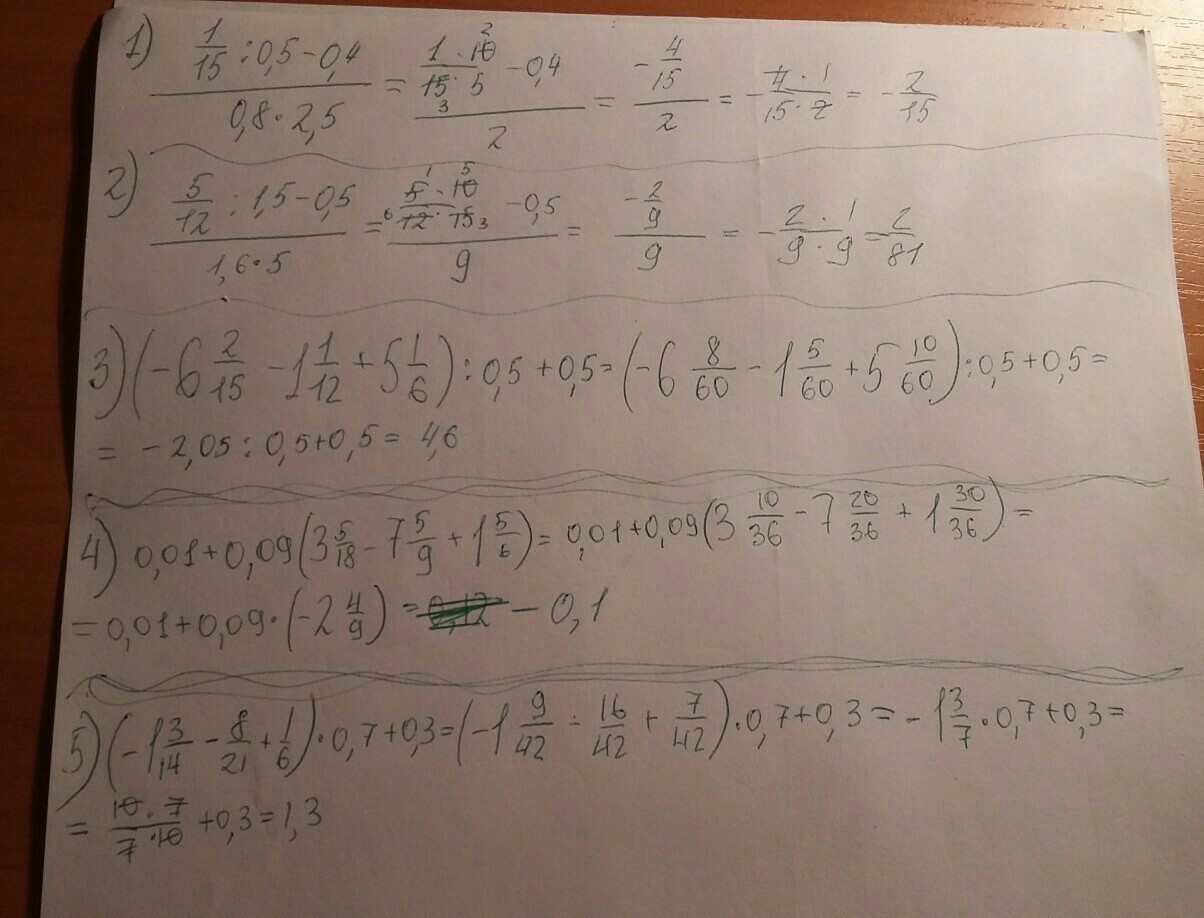 1) (1/15 : 0,5 - 0,4)/(0,8 · 2,5) = ((1 · 10 2)/(15 3 · 5) - 0,4)/2 = (-4/15)/2 = -(4 · 1)/(15 · 2) = -2/15
2) (5/12 : 1,5 - 0,5)/(1,6 · 5) = ((5 1 · 10 5)/(6 12 · 15 3) - 0,5)/9 = (-2/9)/9 = -(2 · 1)/(9 · 9) = 2/81
3) (-6 2/15 - 1 1/12 + 5 1/6) : 0,5 + 0,5 = (-6 8/60 - 1 5/60 + 5 10/60) : 0,5 + 0,5 =
= -2,05 : 0,5 + 0,5 = 4,6
4) 0,01 + 0,09 (3 5/18 - 7 5/9 + 1 5/6) = 0,01 + 0,09 (3 10/36 - 7 20/36 + 1 30/36) =
= 0,01 + 0,09 · (-2 4/9) = - 0,1
5) (-1 3/14 - 8/21 + 1/6) · 0,7 + 0,3 = (-1 9/42 - 16/42 + 7/42) · 0,7 + 0,3 = -1 3/7 · 0,7 + 0,3 =
= (10 · 7)/(7 · 10) + 0,3 = 1,3